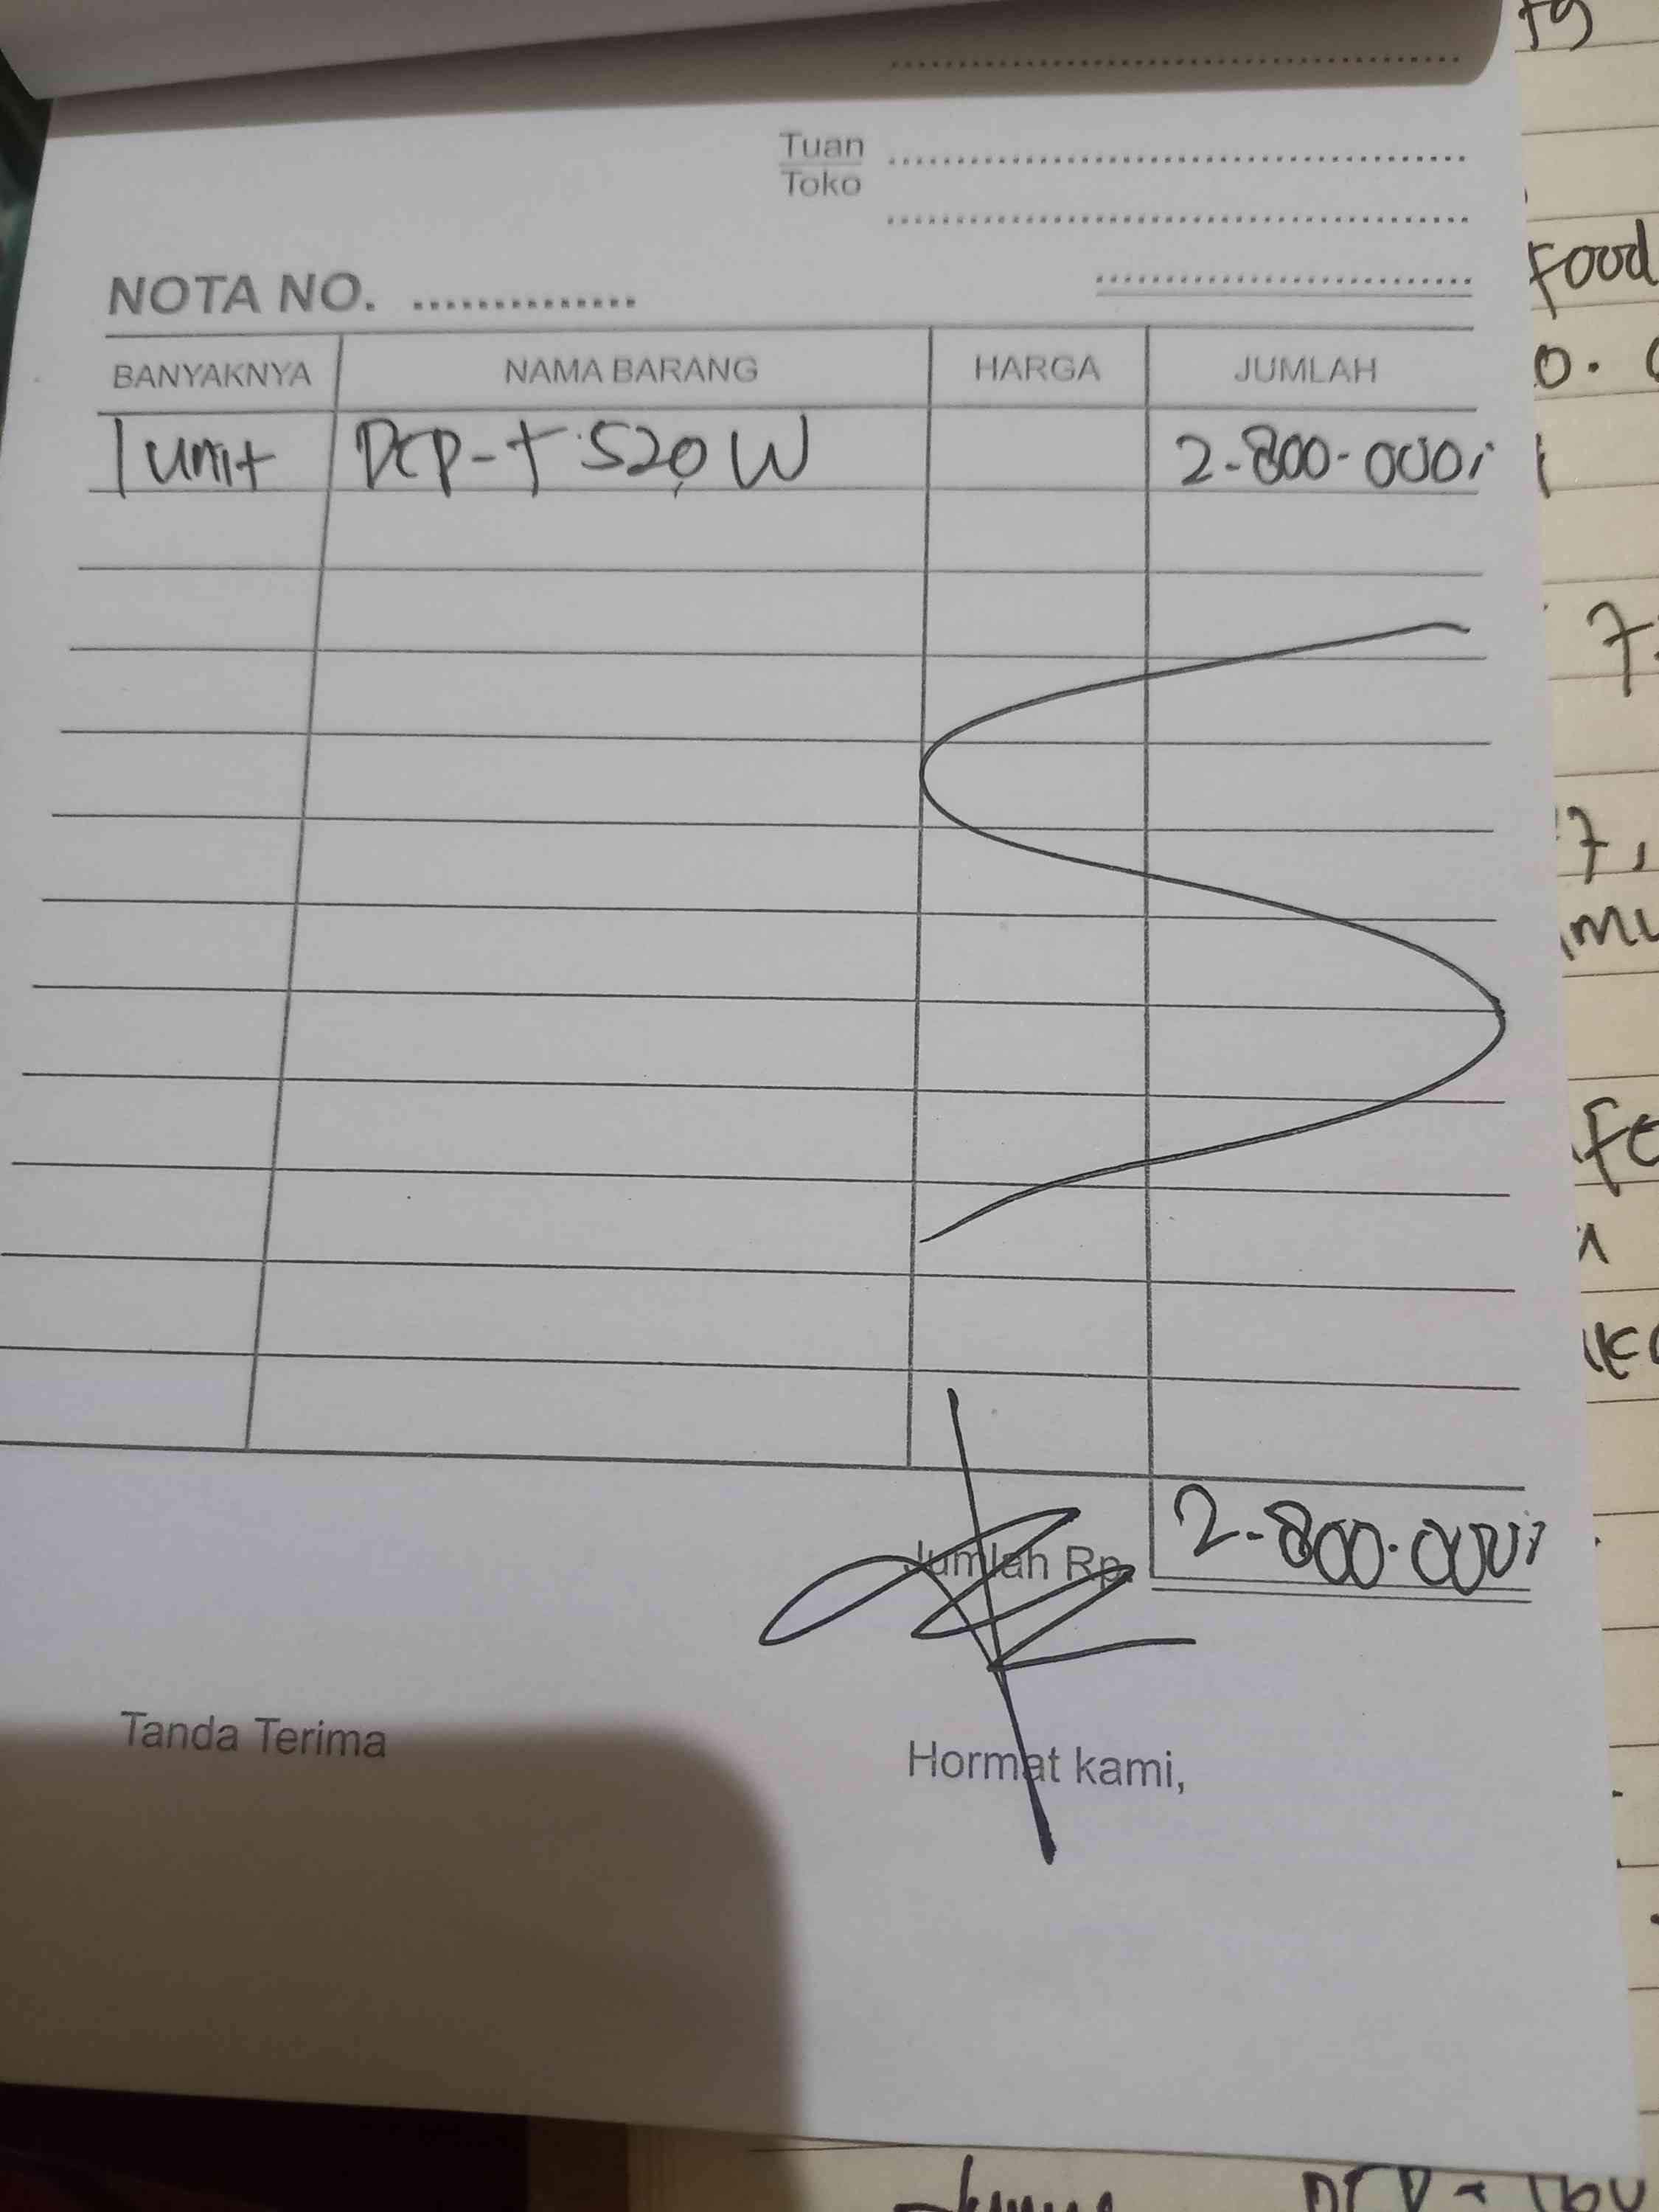 Tuan
Toko
NOTA NO.
BANYAKNYA NAMA BARANG HARGA JUMLAH
1 unit DCP-T 520 W 2.800.000,
Jumlah Rp. 2.800.000,
Tanda Terima Hormat kami,
Food
0.
7.
7,